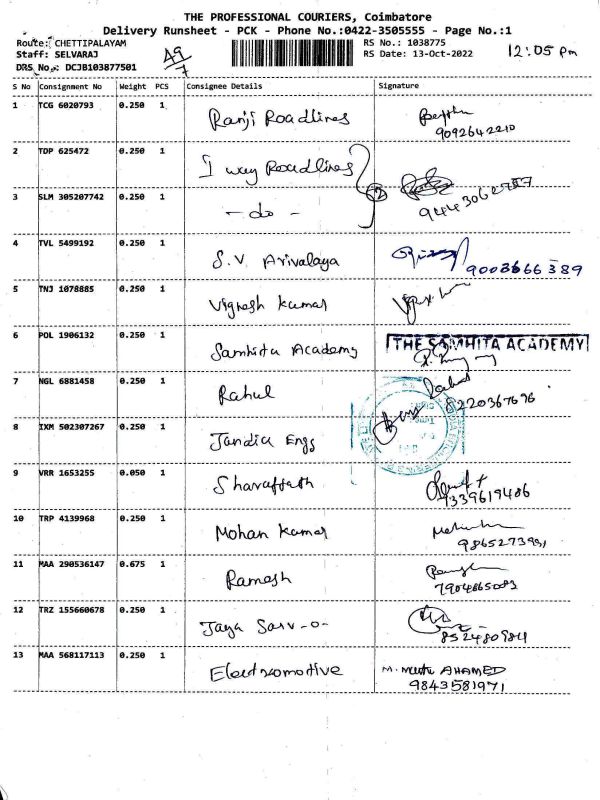 THE PROFESSIONAL COURIERS, Coimbatore
Delivery Runsheet - PCK - Phone No.:0422-3505555 - Page No.:1
Route: CHETTIPALAYAM
Staff: SELVARAJ
DRS No.: DCJB103877501
49/7
RS No.: 1038775
RS Date: 13-Oct-2022
12:05 pm
S No Consignment No Weight PCS Consignee Details Signature
1 TCG 6020793 0.250 1 Ranji Roadlines
9092642210
2 TDP 625472 0.250 1 I way Roadlines
2
3 SLM 305207742 0.250 1 - do -
4 TVL 5499192 0.250 1 S.V Arivalaya
9003666389
5 TNJ 1078885 0.250 1 Vignesh Kumar
6 POL 1906132 0.250 1 Samhita Academy THE SAMHITA ACADEMY
7 NGL 6881458 0.250 1 Rahul
8220367696
8 IXM 502307267 0.250 1 Jandia Engg
9 VRR 1653255 0.050 1
9339619486
10 TRP 4139968 0.250 1 Mohan Kumar
11 MAA 290536147 0.675 1 Ramesh
12 TRZ 155660678 0.250 1 Jaya
13 MAA 568117113 0.250 1 Electromotive M. Muthu AHAMED
9843581971